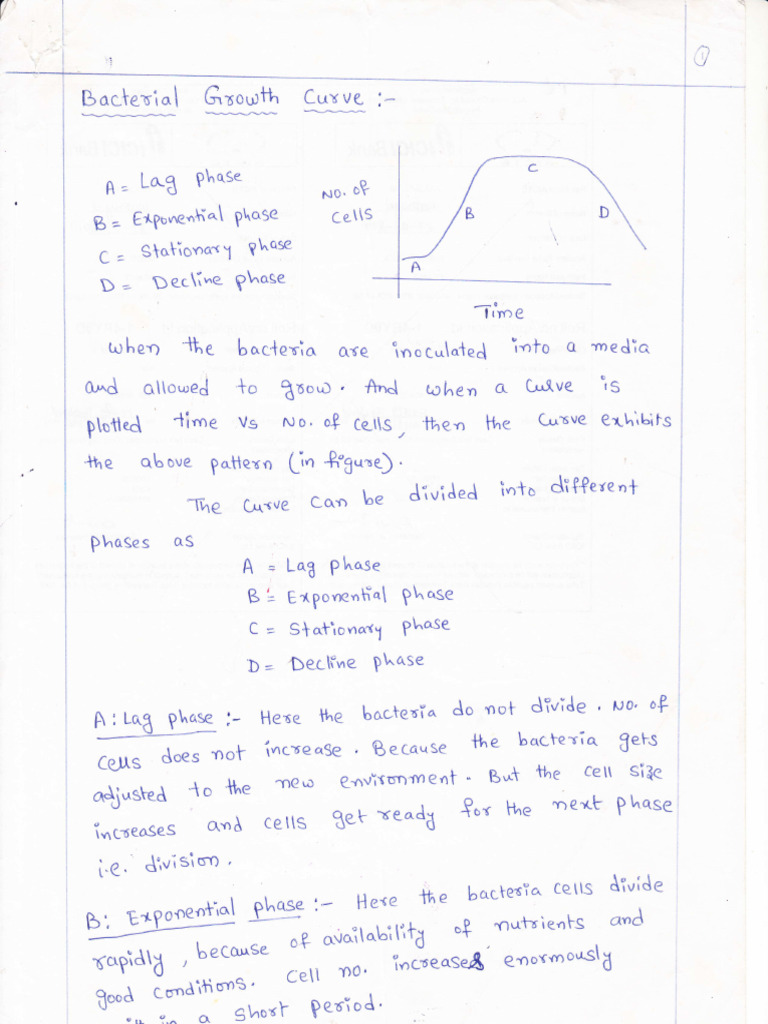 1
Bacterial Growth Curve :-
A = Lag phase
B = Exponential phase
C = Stationary phase
D = Decline phase
No. of
cells
A
B
C
D
Time
When the bacteria are inoculated into a media
and allowed to grow. And when a curve is
plotted time vs No. of cells, then the curve exhibits
the above pattern (in figure).
The curve can be divided into different
phases as
A = Lag phase
B = Exponential phase
C = Stationary phase
D = Decline phase
A: Lag phase :- Here the bacteria do not divide. No. of
cells does not increase. Because the bacteria gets
adjusted to the new environment. But the cell size
increases and cells get ready for the next phase
i.e. division.
B: Exponential phase :- Here the bacteria cells divide
rapidly, because of availability of nutrients and
good conditions. Cell no. increases enormously
in a short period.